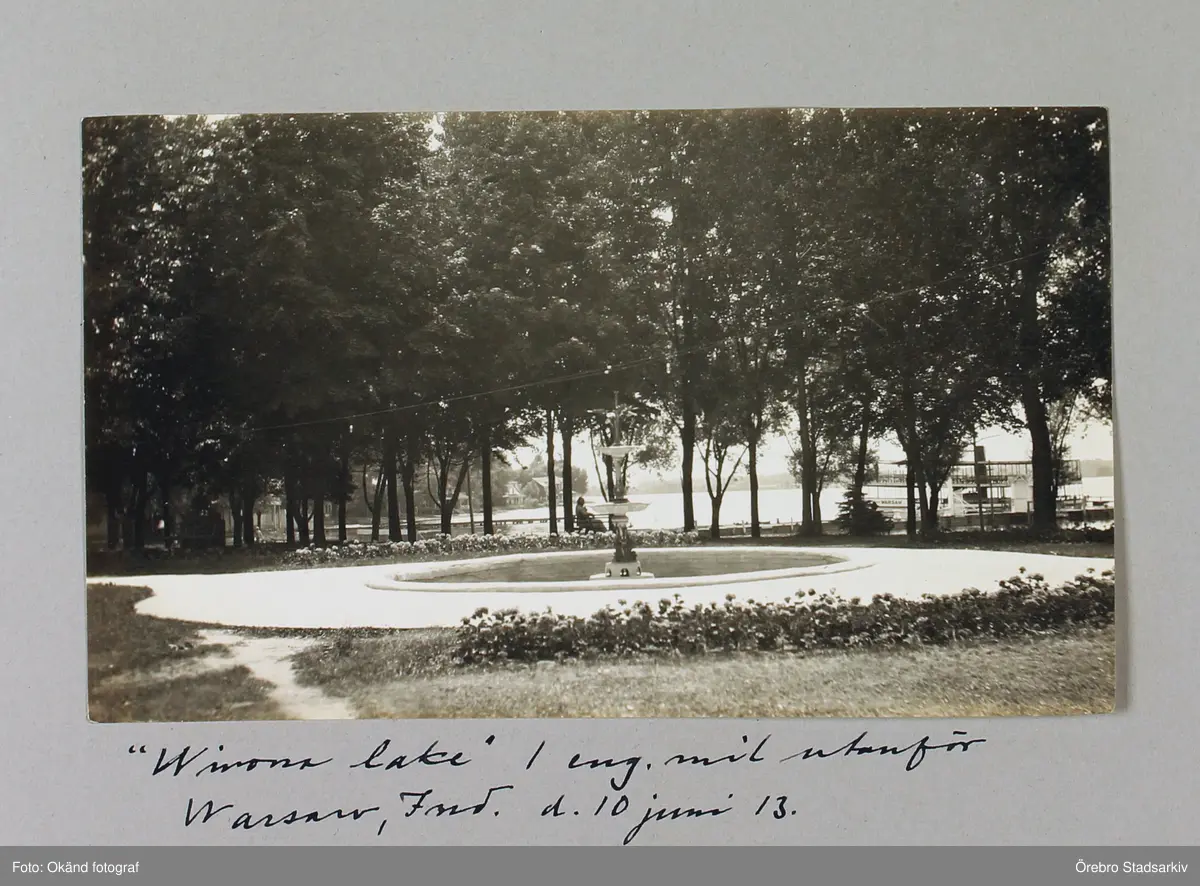 "Winona lake" 1 eng. mil utanför
Warsaw, Ind. d. 10 juni 13.
Foto: Okänd fotograf
Örebro Stadsarkiv